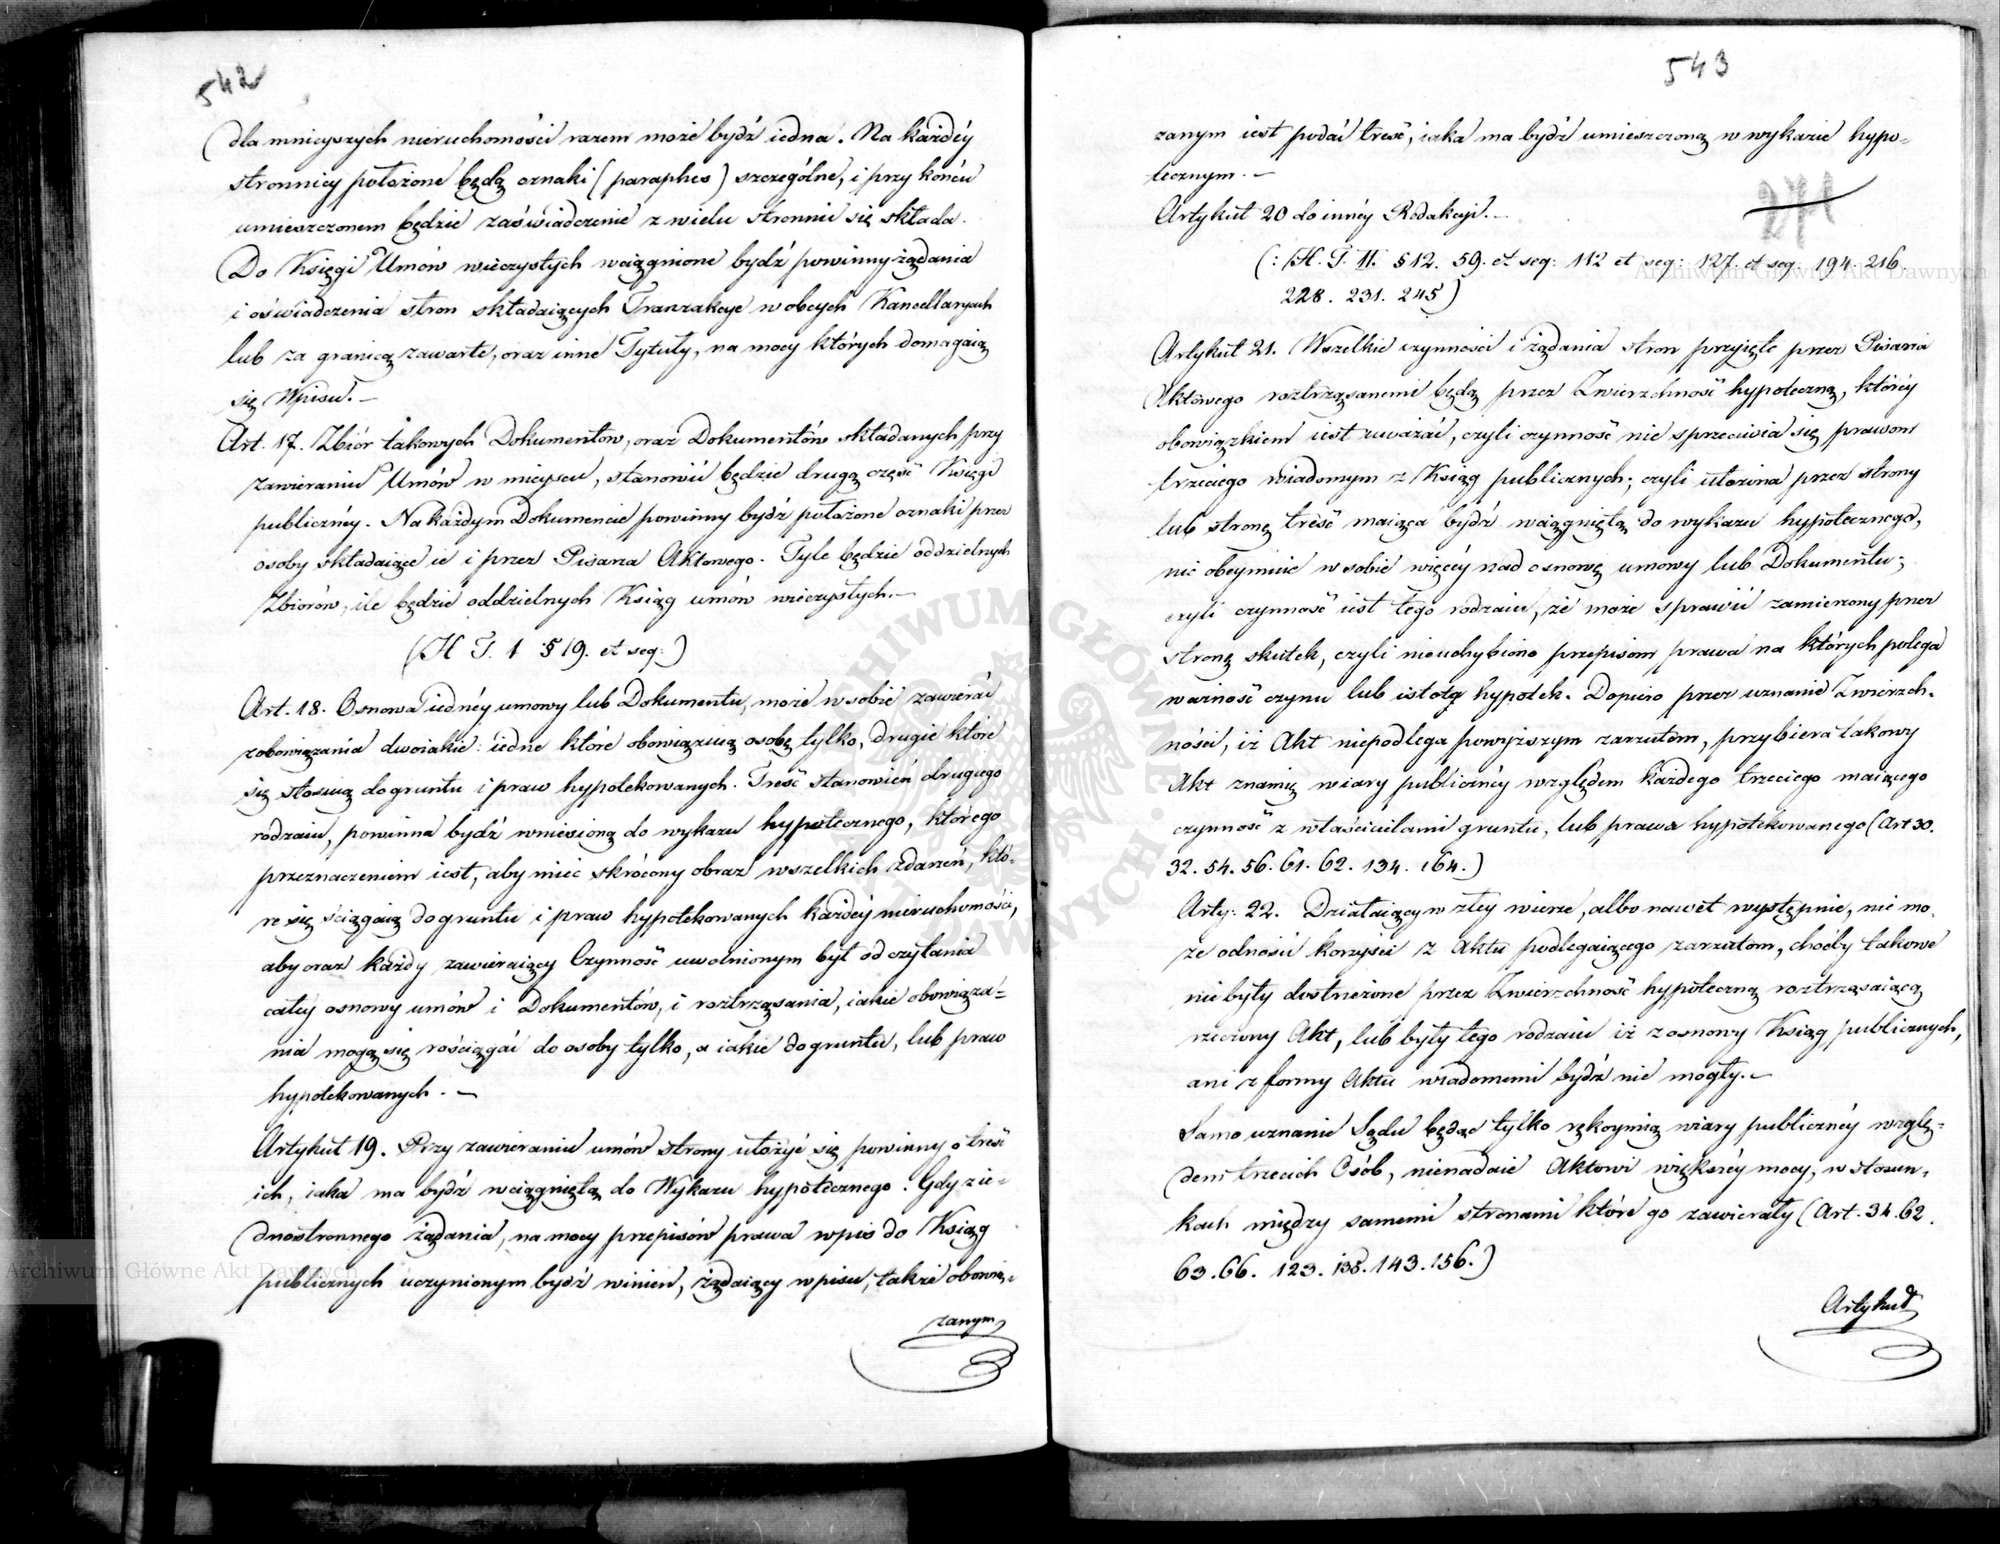 542
dla mnieyszych nieruchomości razem może bydź iedna. Na każdéy
stronnicy położone będą oznaki (paraphes) szczególne, i przy końcu
umieszczonem będzie zaświadczenie z wielu stronnic się składa.
Do Księgi Umów wieczystych wciągnione bydź powinny żądania
i oświadczenia stron składaiących Tranzakcye w obcych Kancellaryach
lub za granicą zawarte, oraz inne Tytuły, na mocy których domagaią
się Wpisu. —
Art. 17. Zbiór takowych Dokumentów, oraz Dokumentów składanych przy
zawieraniu Umów w mieyscu, stanowić będzie drugą część Księgi
publicznéy. Na każdym Dokumencie powinny bydź położone oznaki przez
osoby składaiące ie i przez Pisarza Aktowego. Tyle będzie oddzielnych
Zbiorów, ile będzie oddzielnych Ksiąg umów wieczystych. —
(H T. 1 § 19. et seq:)
Art. 18. Osnowa iednéy umowy lub Dokumentu, może w sobie zawierać
zobowiązania dwoiakie: iedne które obowiązuią osobę tylko, drugie które
się stosuią do gruntu i praw hypotekowanych. Treść stanowień drugiego
rodzaiu, powinna bydź wniesioną do wykazu hypotecznego, którego
przeznaczeniem iest, aby mieć skrócony obraz wszelkich zdarzeń, któ-
re się ściągaią do gruntu i praw hypotekowanych każdéy nieruchomości,
aby oraz każdy zawieraiący Czynność uwolnionym był od czytania
całéy osnowy umów i Dokumentów, i roztrząsania, iakie obowiąza-
nia mogą się rościągać do osoby tylko, a iakie do gruntu, lub praw
hypotekowanych. —
Artykuł 19. Przy zawieraniu umów strony ułożyć się powinny o treść
ich, iaka ma bydź wciągniętą do Wykazu hypotecznego. Gdy z ie-
dnostronnego żądania, na mocy przepisów prawa wpis do Ksiąg
publicznych uczynionym bydź winien, żądaiący wpisu, także obowią-
zanym
543
zanym iest podać treść, iaka ma bydź umieszczoną w wykazie hypo-
tecznym. —
271
Artykuł 20 do innéy Redakcyi. —
(: H. T. II. § 12. 59. et seq: 112 et seq: 127. et seq. 194. 216.
228. 231. 245)
Artykuł 21. Wszelkie czynności i żądania stron przyięte przez Pisarza
Aktowego roztrząsanemi będą przez Zwierzchność hypoteczną, któréy
obowiązkiem iest uważać, czyli czynność nie sprzeciwia się prawom
trzeciego wiadomym z Ksiąg publicznych; czyli ułożona przez strony
lub stronę treść maiąca bydź wciągniętą do wykazu hypotecznego,
nie obeymuie w sobie więcéy nad osnowę umowy lub Dokumentu;
czyli czynność iest tego rodzaiu, że może sprawić zamierzony przez
stronę skutek, czyli nieuchybiono przepisom prawa na których polega
ważność czynu lub istota hypotek. Dopiero przez uznanie Zwierzch-
ności, iż Akt niepodlega powyższym zarzutom, przybiera takowy
Akt znamię wiary publicznéy względem każdego trzeciego maiącego
czynność z właścicielami gruntu, lub prawa hypotekowanego (Art 30.
32. 54. 56. 61. 62. 134. 164.)
Arty: 22. Działaiący w złéy wierze, albo nawet występnie, nie mo-
że odnosić korzyści z Aktu podlegaiącego zarzutom, choćby takowe
nie były dostrzeżone przez Zwierzchność hypoteczną roztrząsaiącą
rzeczony Akt, lub były tego rodzaiu iż z osnowy Ksiąg publicznych,
ani z formy Aktu wiadomemi bydź nie mogły. —
Samo uznanie Sądu będąc tylko rękoymią wiary publicznéy wzglę-
dem trzecich Osób, nienadaie Aktowi większéy mocy, w stosun-
kach między samemi stronami które go zawierały (Art. 34. 62.
63. 66. 123. 138. 143. 156.)
Artykuł
Archiwum Główne Akt Dawnych
Archiwum Główne Akt Dawnych
ARCHIWUM GŁÓWNE AKT DAWNYCH